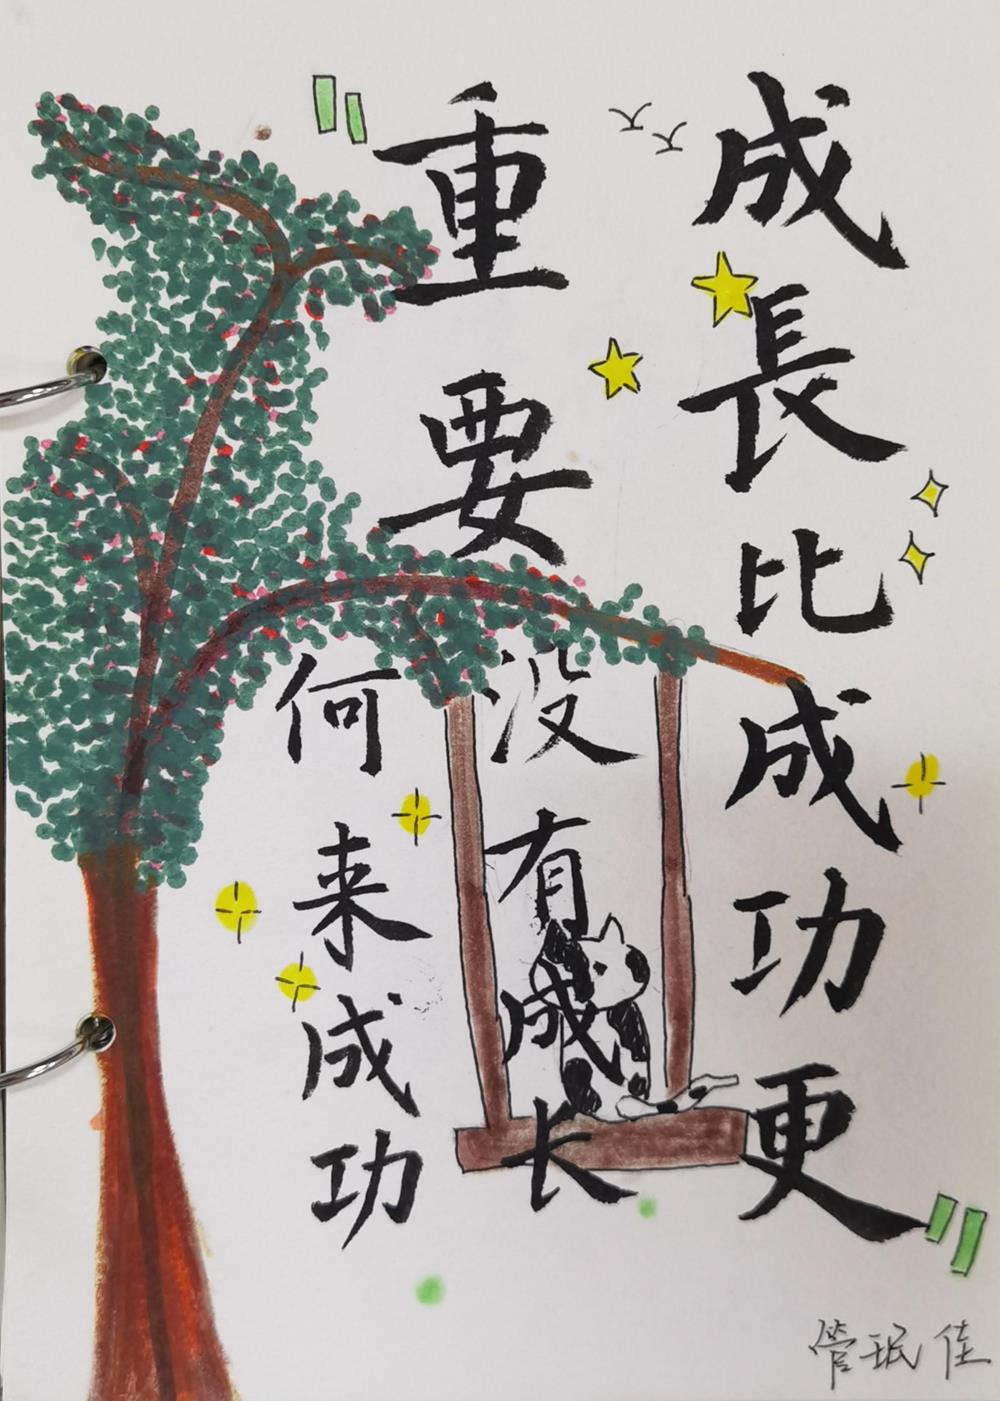 成長比成功更
重要
没有成长
何来成功
管珉佳